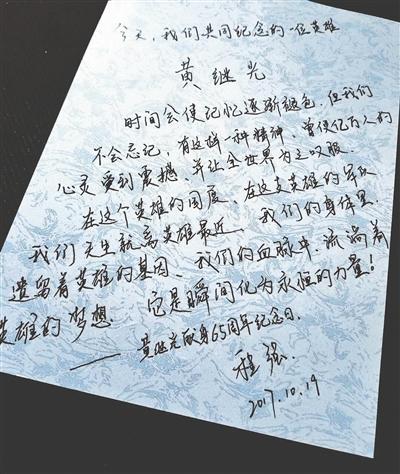 今天，我们共同纪念的一位英雄
黄继光
时间会使记忆逐渐褪色，但我们
不会忘记，有这样一种精神，曾使亿万人的
心灵受到震撼，并让全世界为之叹服。
在这个英雄的国度，在这支英雄的军队
我们天生就离英雄最近，我们的身体里，
遗留着英雄的基因，我们的血脉中，流淌着
英雄的梦想，它是瞬间化为永恒的力量！
——黄继光献身65周年纪念日.
程强.
2017.10.19